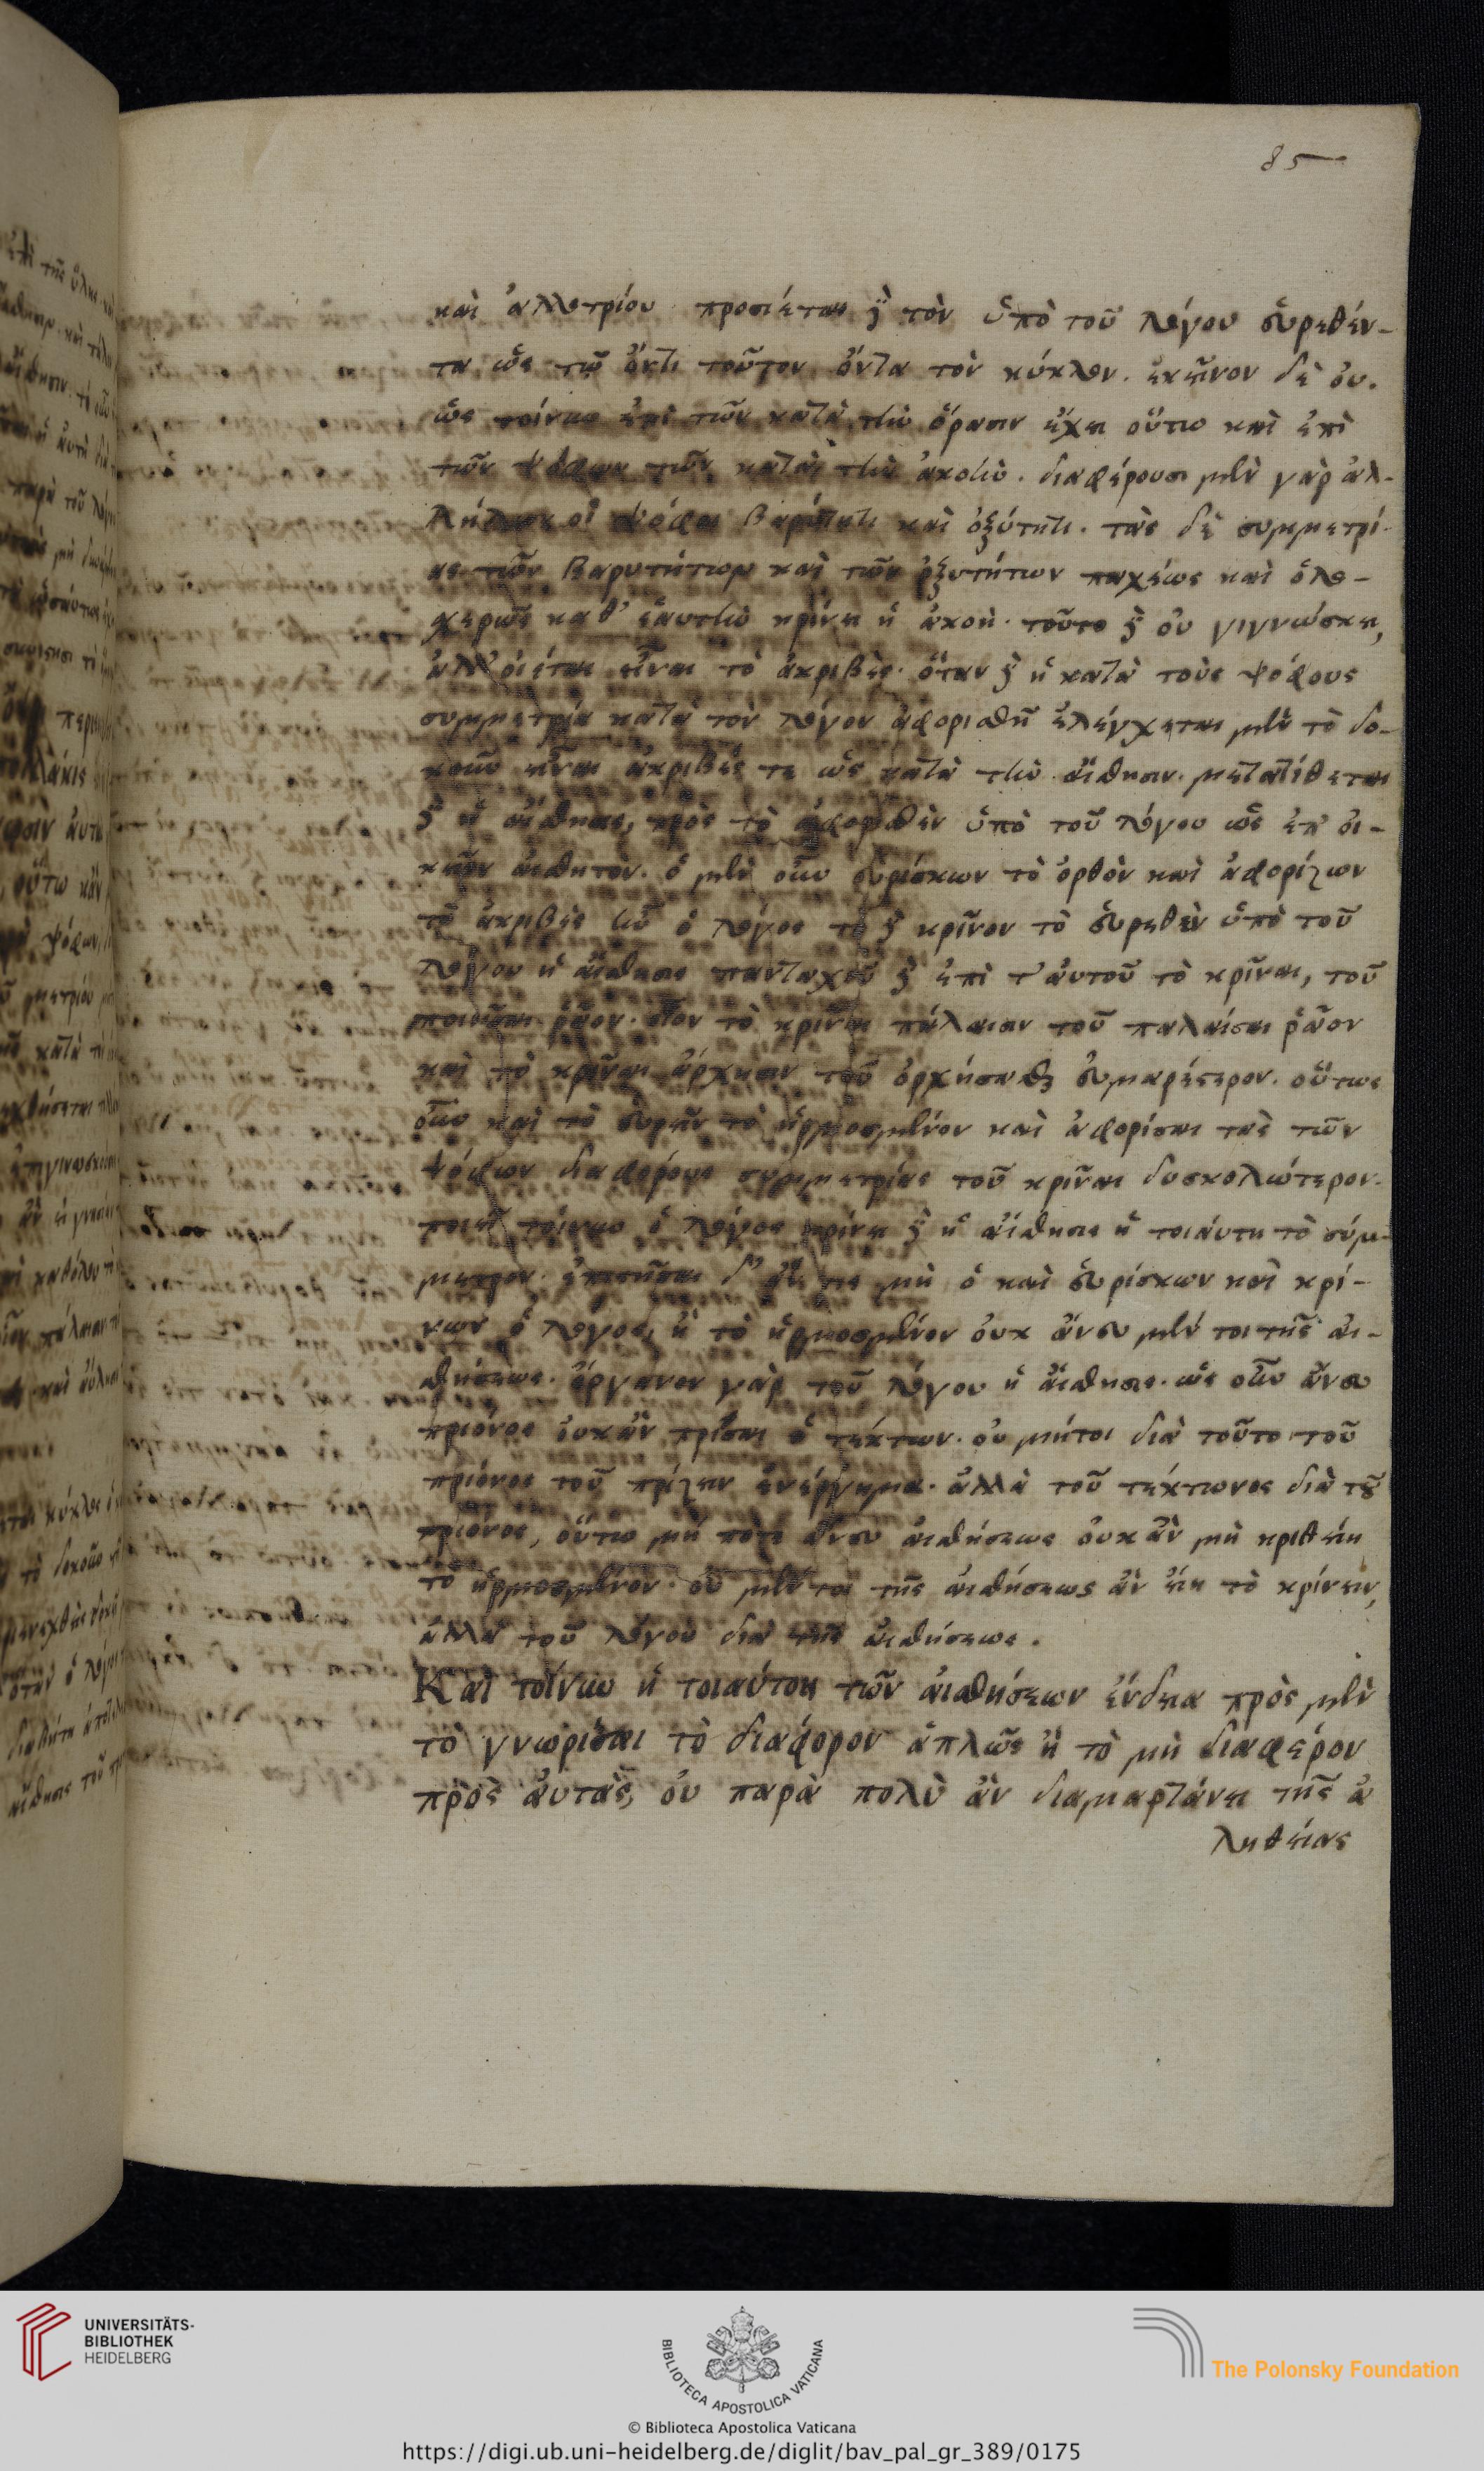 85
καὶ ἀλλοτρίου προσίεται δὲ τὸν ὑπὸ τοῦ λόγου εὑρεθέν-
τα ὡς τῷ ὄντι τοῦτον ὄντα τὸν κύκλον. ἐκεῖνον δὲ οὐ.
ὡς τοίνυν ἐπὶ τῶν κατὰ τὴν ὅρασιν ἔχει οὕτω καὶ ἐπὶ
τῶν ψόφων τῶν κατὰ τὴν ἀκοὴν. διαφέρουσι μὲν γὰρ ἀλ-
λήλων οἱ ψόφοι βαρύτητι καὶ ὀξύτητι. τὰς δὲ συμμετρί-
ας τῶν βαρυτήτων καὶ τῶν ὀξυτήτων παχέως καὶ ὁλο-
χερῶς καθ' ἑαυτὴν κρίνει ἡ ἀκοὴ. τοῦτο δὲ οὐ γιγνώσκει,
ἀλλ' οἴεται εἶναι τὸ ἀκριβὲς. ὅταν δὲ ἡ κατὰ τοὺς ψόφους
συμμετρία κατὰ τὸν λόγον ἀφορισθῇ ἐλέγχεται μὲν τὸ δο-
κοῦν εἶναι ἀκριβές τε ὡς κατὰ τὴν αἴσθησιν. μετατίθεται
δὲ ἡ αἴσθησις, πρὸς τὸ ἀφορισθὲν ὑπὸ τοῦ λόγου ὡς ἐπ' οἰ-
κεῖον αἰσθητὸν. ὁ μὲν οὖν εὑρίσκων τὸ ὀρθὸν καὶ ἀφορίζων
τὸ ἀκριβὲς ἦν ὁ λόγος τὸ δὲ κρῖνον τὸ εὑρεθὲν ὑπὸ τοῦ
λόγου ἡ αἴσθησις πανταχοῦ δὲ ἐπὶ τ' αὐτοῦ τὸ κρῖναι, τοῦ
ποιῆσαι ῥᾷον. οἷον τὸ κρῖναι πάλαισιν τοῦ παλαίσαι ῥᾷον
καὶ τὸ κρῖναι ὄρχησιν τοῦ ὀρχήσασθαι εὐμαρέστερον. οὕτως
οὖν καὶ τὸ εὑρεῖν τὸ ἡρμοσμένον καὶ ἀφορίσαι τὰς τῶν
ψόφων διαφόρους συμμετρίας τοῦ κρῖναι δυσκολώτερον.
ποιεῖ τοίνυν ὁ λόγος κρίνει δὲ ἡ αἴσθησις ἡ τοιαύτη τὸ σύμ-
μετρον. ἐπιστῆσαι δ' ἄν τις μὴ ὁ καὶ εὑρίσκων καὶ κρί-
νων ὁ λόγος, ᾖ τὸ ἡρμοσμένον οὐκ ἄνευ μέν τοι τῆς αἰ-
σθήσεως. ὄργανον γὰρ τοῦ λόγου ἡ αἴσθησις. ὡς οὖν ἄνευ
πρίονος οὐκ ἂν πρίσαι ὁ τέκτων. οὐ μήτοι διὰ τοῦτο τοῦ
πρίονος τοῦ πρίζειν ἐνέργημα. ἀλλὰ τοῦ τέκτωνος διὰ τοῦ
πρίονος, οὕτω μή ποτε ἄνευ αἰσθήσεως οὐκ ἂν μὴ κριθείη
τὸ ἡρμοσμένον. οὐ μέν τοι τῆς αἰσθήσεως ἂν εἴη τὸ κρίνειν,
ἀλλὰ τοῦ λόγου διὰ τῆς αἰσθήσεως.
Καὶ τοίνυν ἡ τοιαύτη τῶν αἰσθήσεων ἔνδεια πρὸς μὲν
τὸ γνωρίσαι τὸ διάφορον ἁπλῶς ἢ τὸ μὴ διαφέρον
πρὸς αὐτάς, οὐ παρὰ πολὺ ἂν διαμαρτάνει τῆς ἀ
ληθείας
UNIVERSITÄTS-
BIBLIOTHEK
HEIDELBERG
BIBLIOTECA APOSTOLICA VATICANA
The Polonsky Foundation
© Biblioteca Apostolica Vaticana
https://digi.ub.uni-heidelberg.de/diglit/bav_pal_gr_389/0175